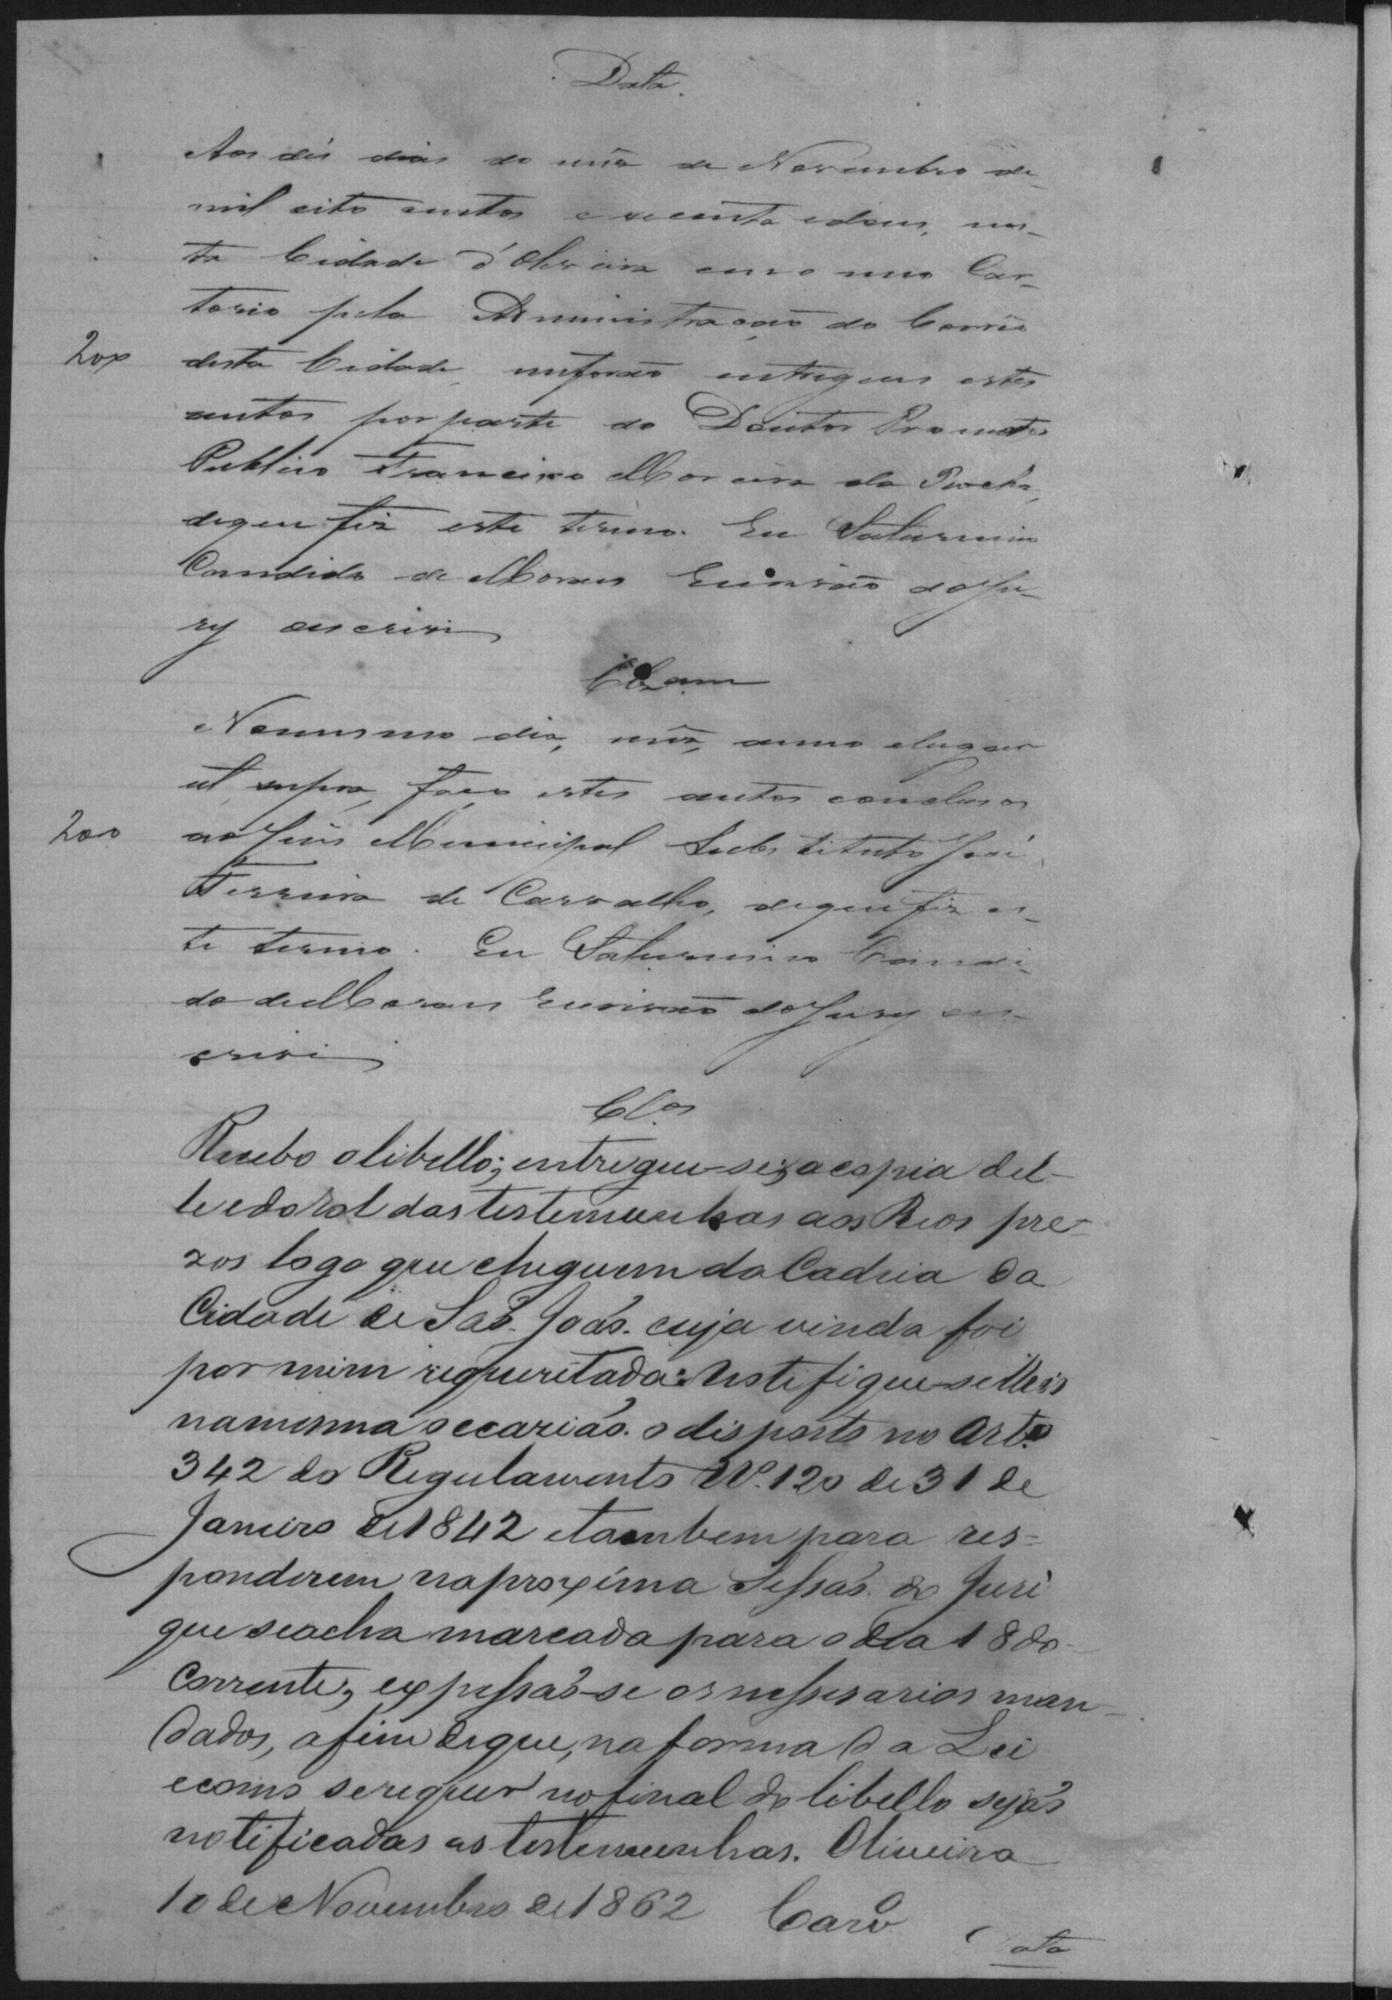 Data.
Aos dés dias do mês de Novembro de
mil oito centos e secenta edous, nes-
ta Cidade d'Oliveira em o meu Car-
torio pela Administração do Correio
200 desta Cidade, meforão entregues estes
autos por parte do Doutor Promotor
Publico Francisco Moreira da Rocha,
deque fiz este termo. Eu Saturnino
Candido de Moraes Escrivão do Ju-
ry escrivi
Clsam
Nomesmo dia, mês, anno elugar
ut supra, faço estes autos conclusos
200 ao Juis Municipal Substituto José
Ferreira de Carvalho, deque fiz es-
te termo. Eu Saturnino Candi-
do de Moraes Escrivão do Jury es-
crivi
Cl.os
Recebo olibello; entregue-se a copia del-
le edorol das testemunhas aos Reos pre-
zos logo que cheguem da Cadeia da
Cidade de São João. cuja vinda foi
por mim requezitada: Notefique-selheis
namesma occazião. o disposto no Art.º
342 do Regulamento Nº. 120 de 31 de
Janeiro de 1842 etambem para res-
ponderem naproxima Sessão. do Juri
que seacha marcada para o dia 18 do
Corrente, expessão-se os nessesarios man-
dados, afim deque, na forma da Lei
ecomo serequer nofinal do libello sejão
notificadas as testemunhas. Oliveira
10 de Novembro de 1862 Carvº
Data